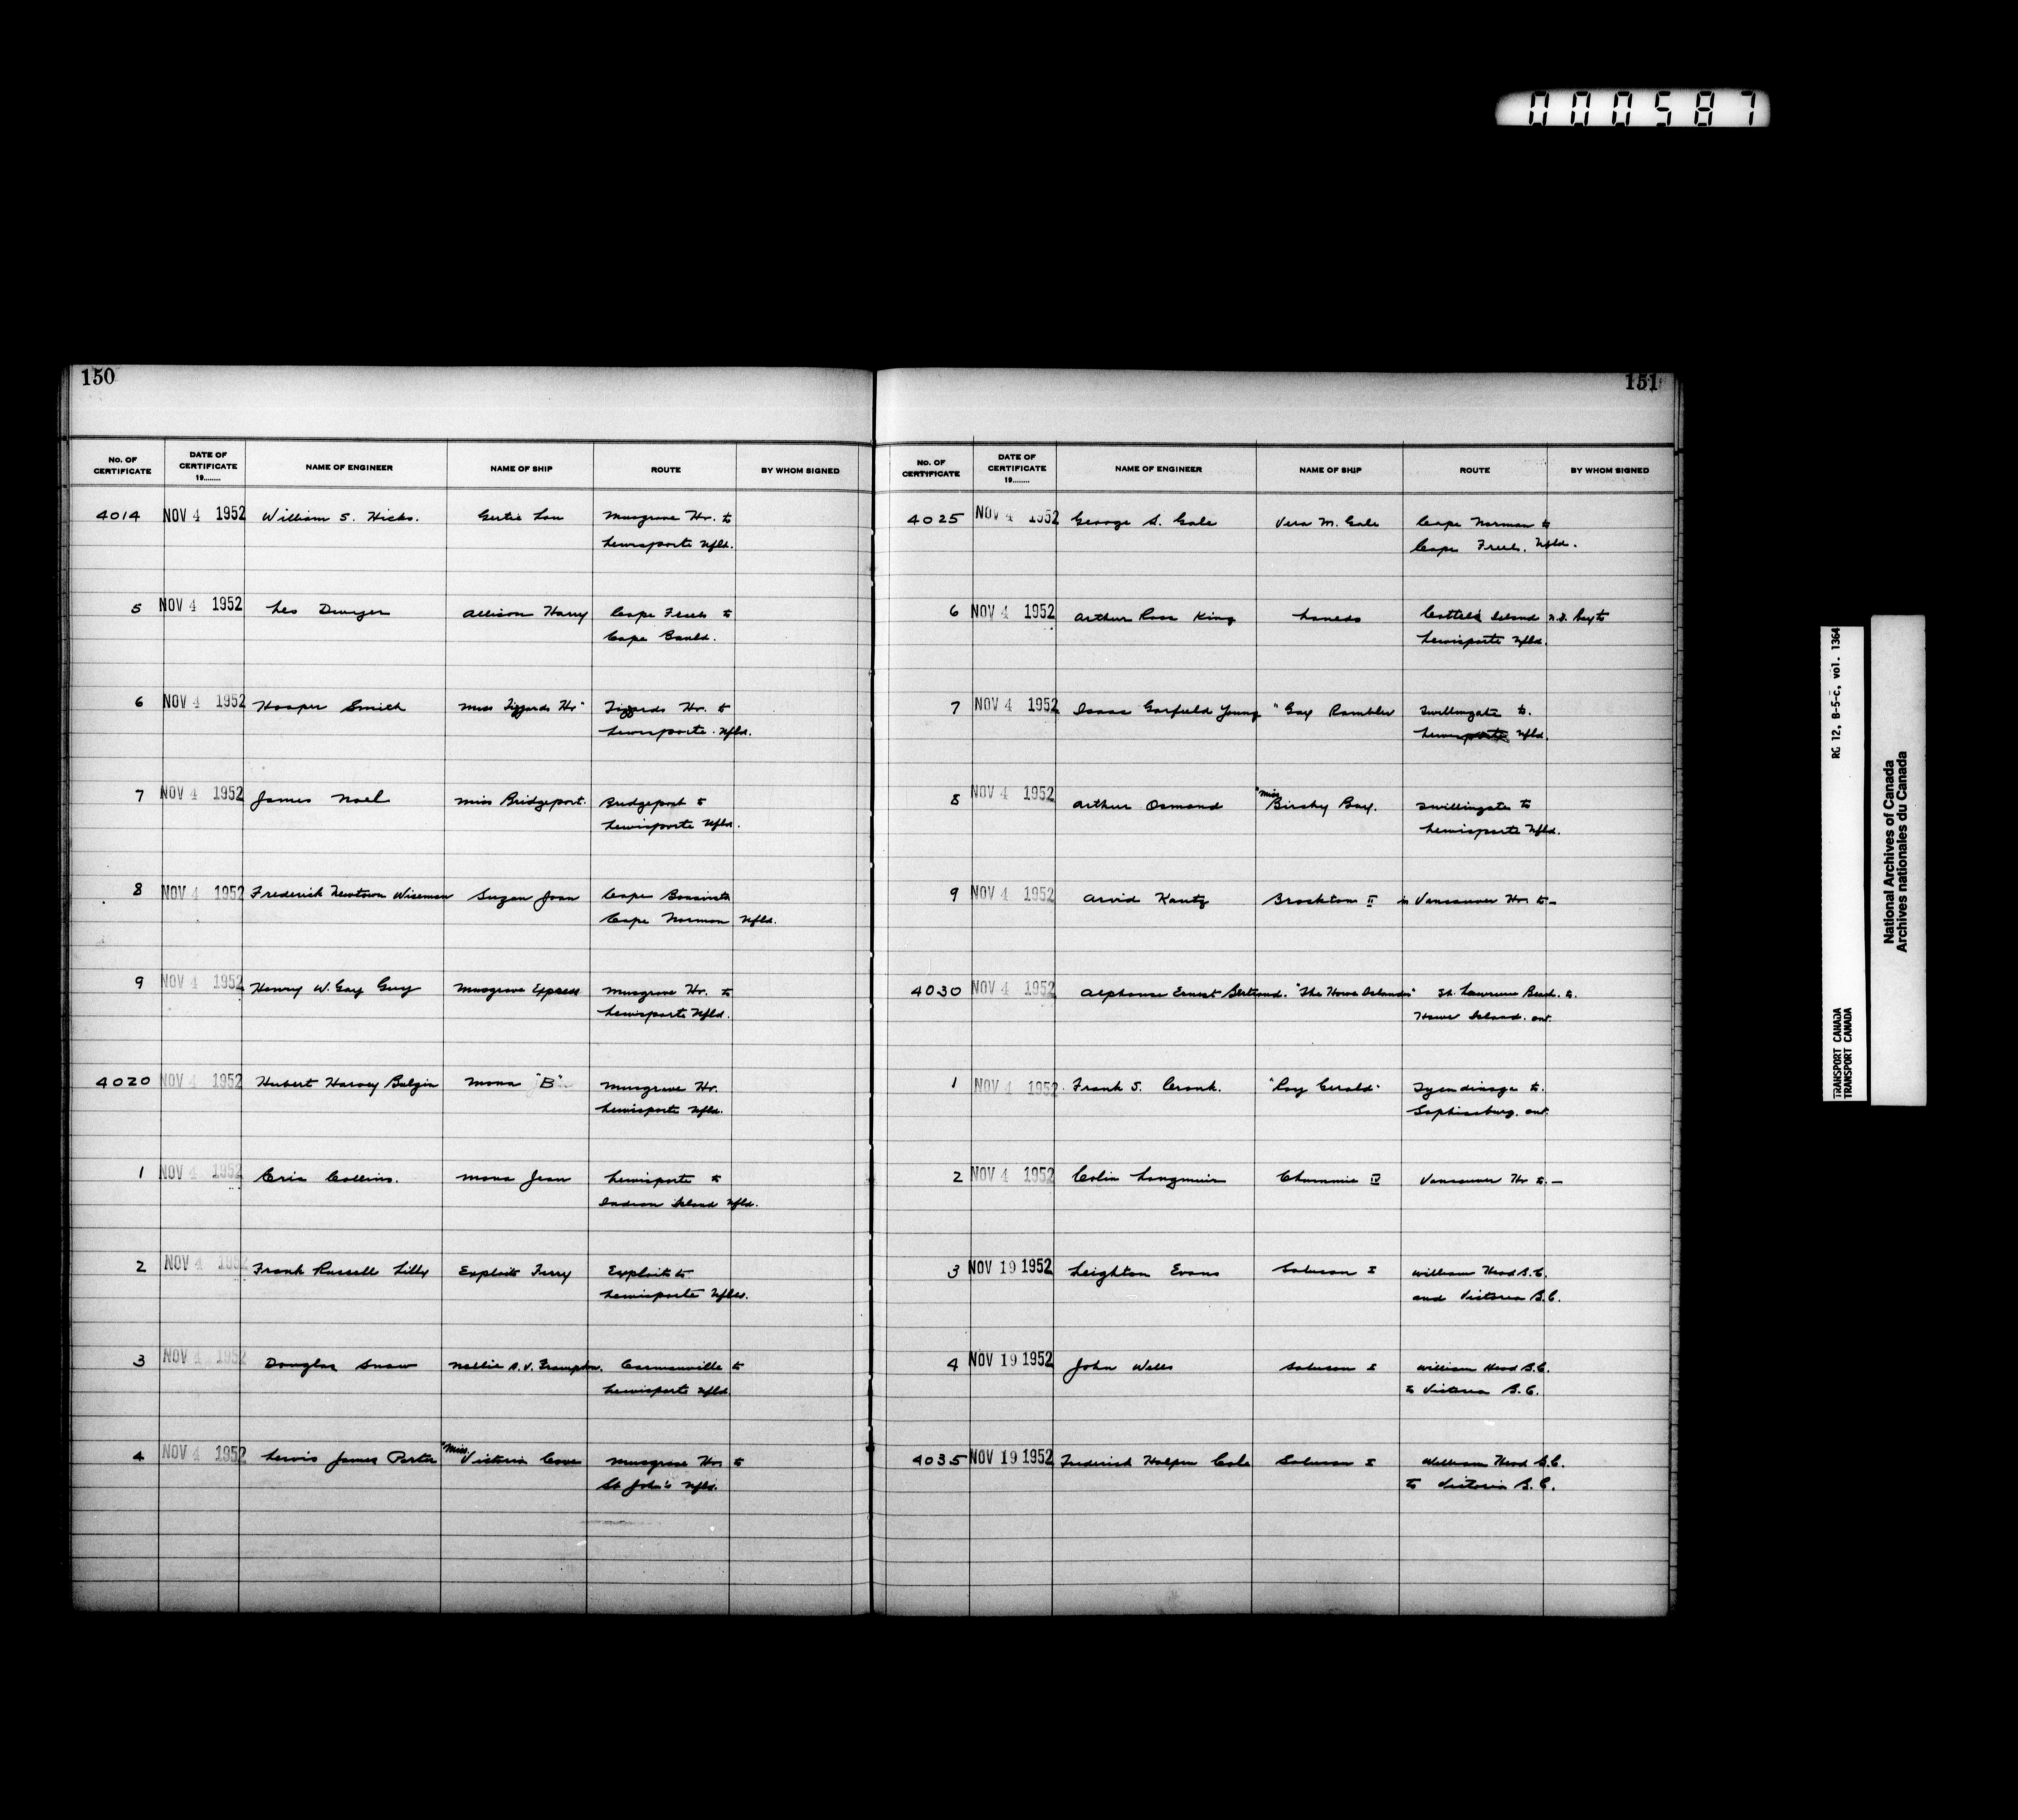 000587
150
No. OF CERTIFICATE DATE OF CERTIFICATE 19........ NAME OF ENGINEER NAME OF SHIP ROUTE BY WHOM SIGNED
4014 NOV 4 1952 William S. Hicks. Gertie Lou Musgrave Hr. to
Lewisporte Nfld.
5 NOV 4 1952 Leo Dwyer Allison Harry Cape Freels to
Cape Bauld.
6 NOV 4 1952 Hooper Smith Miss Tizzards Hr" Tizzards Hr. to
Lewisporte. Nfld.
7 NOV 4 1952 James Noel Miss Bridgeport. Bridgeport to
Lewisporte Nfld.
8 NOV 4 1952 Frederick Newtown Wiseman Suzan Joan Cape Bonavista
Cape Norman Nfld.
9 NOV 4 1952 Henry W. Gay Guy Musgrave Express Musgrave Hr. to
Lewisporte Nfld.
4020 NOV 4 1952 Hubert Harvey Mona "B" Musgrave Hr.
Lewisporte Nfld.
1 NOV 4 1952 Eric Collins. Mona Jean Lewisporte to
Indian Island Nfld.
2 NOV 4 1952 Frank Russell Lilly Exploits Ferry Exploits to
Lewisporte Nfld.
3 NOV 4 1952 Douglas Snow Nellie A. V. Frampton. Carmanville to
Lewisporte Nfld.
4 NOV 4 1952 Lewis James Porter "Miss. Victoria Cove Musgrave Hr to
St John's Nfld.
151
No. OF CERTIFICATE DATE OF CERTIFICATE 19........ NAME OF ENGINEER NAME OF SHIP ROUTE BY WHOM SIGNED
4025 NOV 4 1952 George S. Gale Vera M. Gale Cape Norman to
Cape Freels. Nfld.
6 NOV 4 1952 Arthur Ross King Cottels Island N.D. Bay to
Lewisporte Nfld.
7 NOV 4 1952 Isaac Garfield Young "Gay Rambler Twillingate to.
Lewisporte Nfld.
8 NOV 4 1952 Arthur Osmond "Miss Birchy Bay. Twillingate to
Lewisporte Nfld.
9 NOV 4 1952 Arvid Kautz Brockton II in Vancouver Hr to -
4030 NOV 4 1952 Alphonse Ernest Bertrand. "The Howe Islander" St. Lawrence Beach. to.
Howe Island. Ont.
1 NOV 4 1952 Frank S. Cronk. "Roy Gerald" Tyendinaga to.
Sophiasburg. Ont.
2 NOV 4 1952 Colin Longmuir Chummie IV Vancouver Hr to. -
3 NOV 19 1952 Leighton Evans Salmson I William Head B.C.
and Victoria B.C.
4 NOV 19 1952 John Wells I William Head B.C.
to Victoria B.C.
4035 NOV 19 1952 Frederick Halpen Cole I William Head B.C.
to Victoria B.C.
RG 12, B-5-c, vol. 1364
TRANSPORT CANADA
TRANSPORT CANADA
National Archives of Canada
Archives nationales du Canada